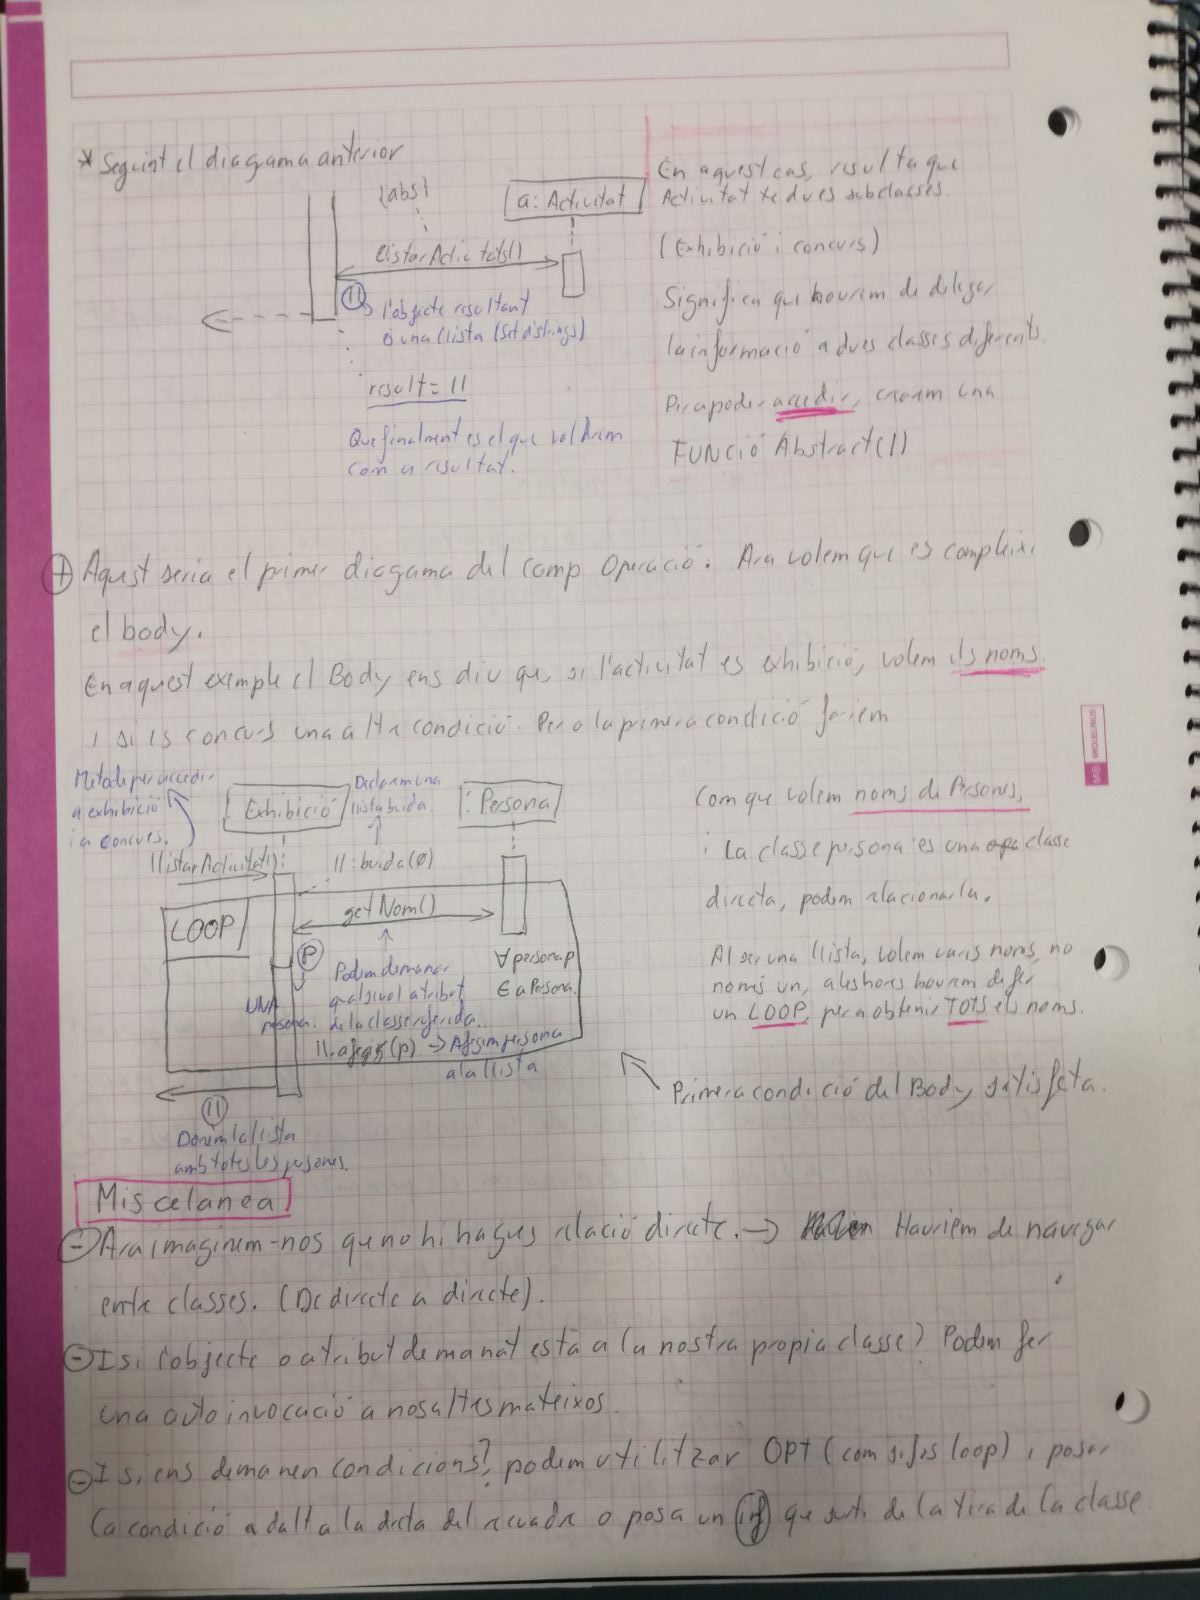 * Seguint el diagama anterior
{abs}
a: Activitat
llistarActivitats()
ll
L'objecte resultant
és una llista (Set d'strings)
result = ll
Que finalment es el que voldrem
com a resultat.
En aquest cas, resulta que
Activitat te dues subclasses.
(Exhibició i concurs)
Significa que haurem de delegar
la informació a dues classes diferents.
Per a poder accedir, crearem una
FUNCIÓ Abstract(1)
+ Aquest seria el primer diagama del comp Operació. Ara volem que es compleixi
el body.
En aquest exemple el Body ens diu que, si l'activitat es exhibició, volem els noms.
i si es concurs una altra condició. Per a la primera condició fariem
Metode per accedir
a exhibició
i a concurs.
: Exhibició
Declarem una
llista buida.
: Persona
llistarActivitat()
ll: buida(Ø)
LOOP
getNom()
P
UNA
persona.
Podem demanar
qualsevol atribut
de la classe referida.
∀ persona p
∈ a Persona.
ll.afegir(p) → Afegim persona
a la llista
ll
Donem la llista
amb totes les persones.
Com que volem noms de Persones,
i La classe persona es una classe
directa, podem relacionarla.
Al ser una llista, volem varis noms, no
només un, aleshores haurem de fer
un LOOP, per a obtenir TOTS els noms.
Primera condició del Body satisfeta.
Miscelanea
- Ara imaginem-nos que no hi hagues relació directe. → Hauriem de navegar
entre classes. (De directe a directe).
- I si l'objecte o atribut demanat està a la nostra propia classe? Podem fer
una autoinvocació a nosaltres mateixos.
- I si ens demanen condicions?, podem utilitzar OPT (com si fos loop) i posar
la condició a dalt a la dreta del recuadre o posa un if que surti de la tira de la classe.
MIQUELRIUS